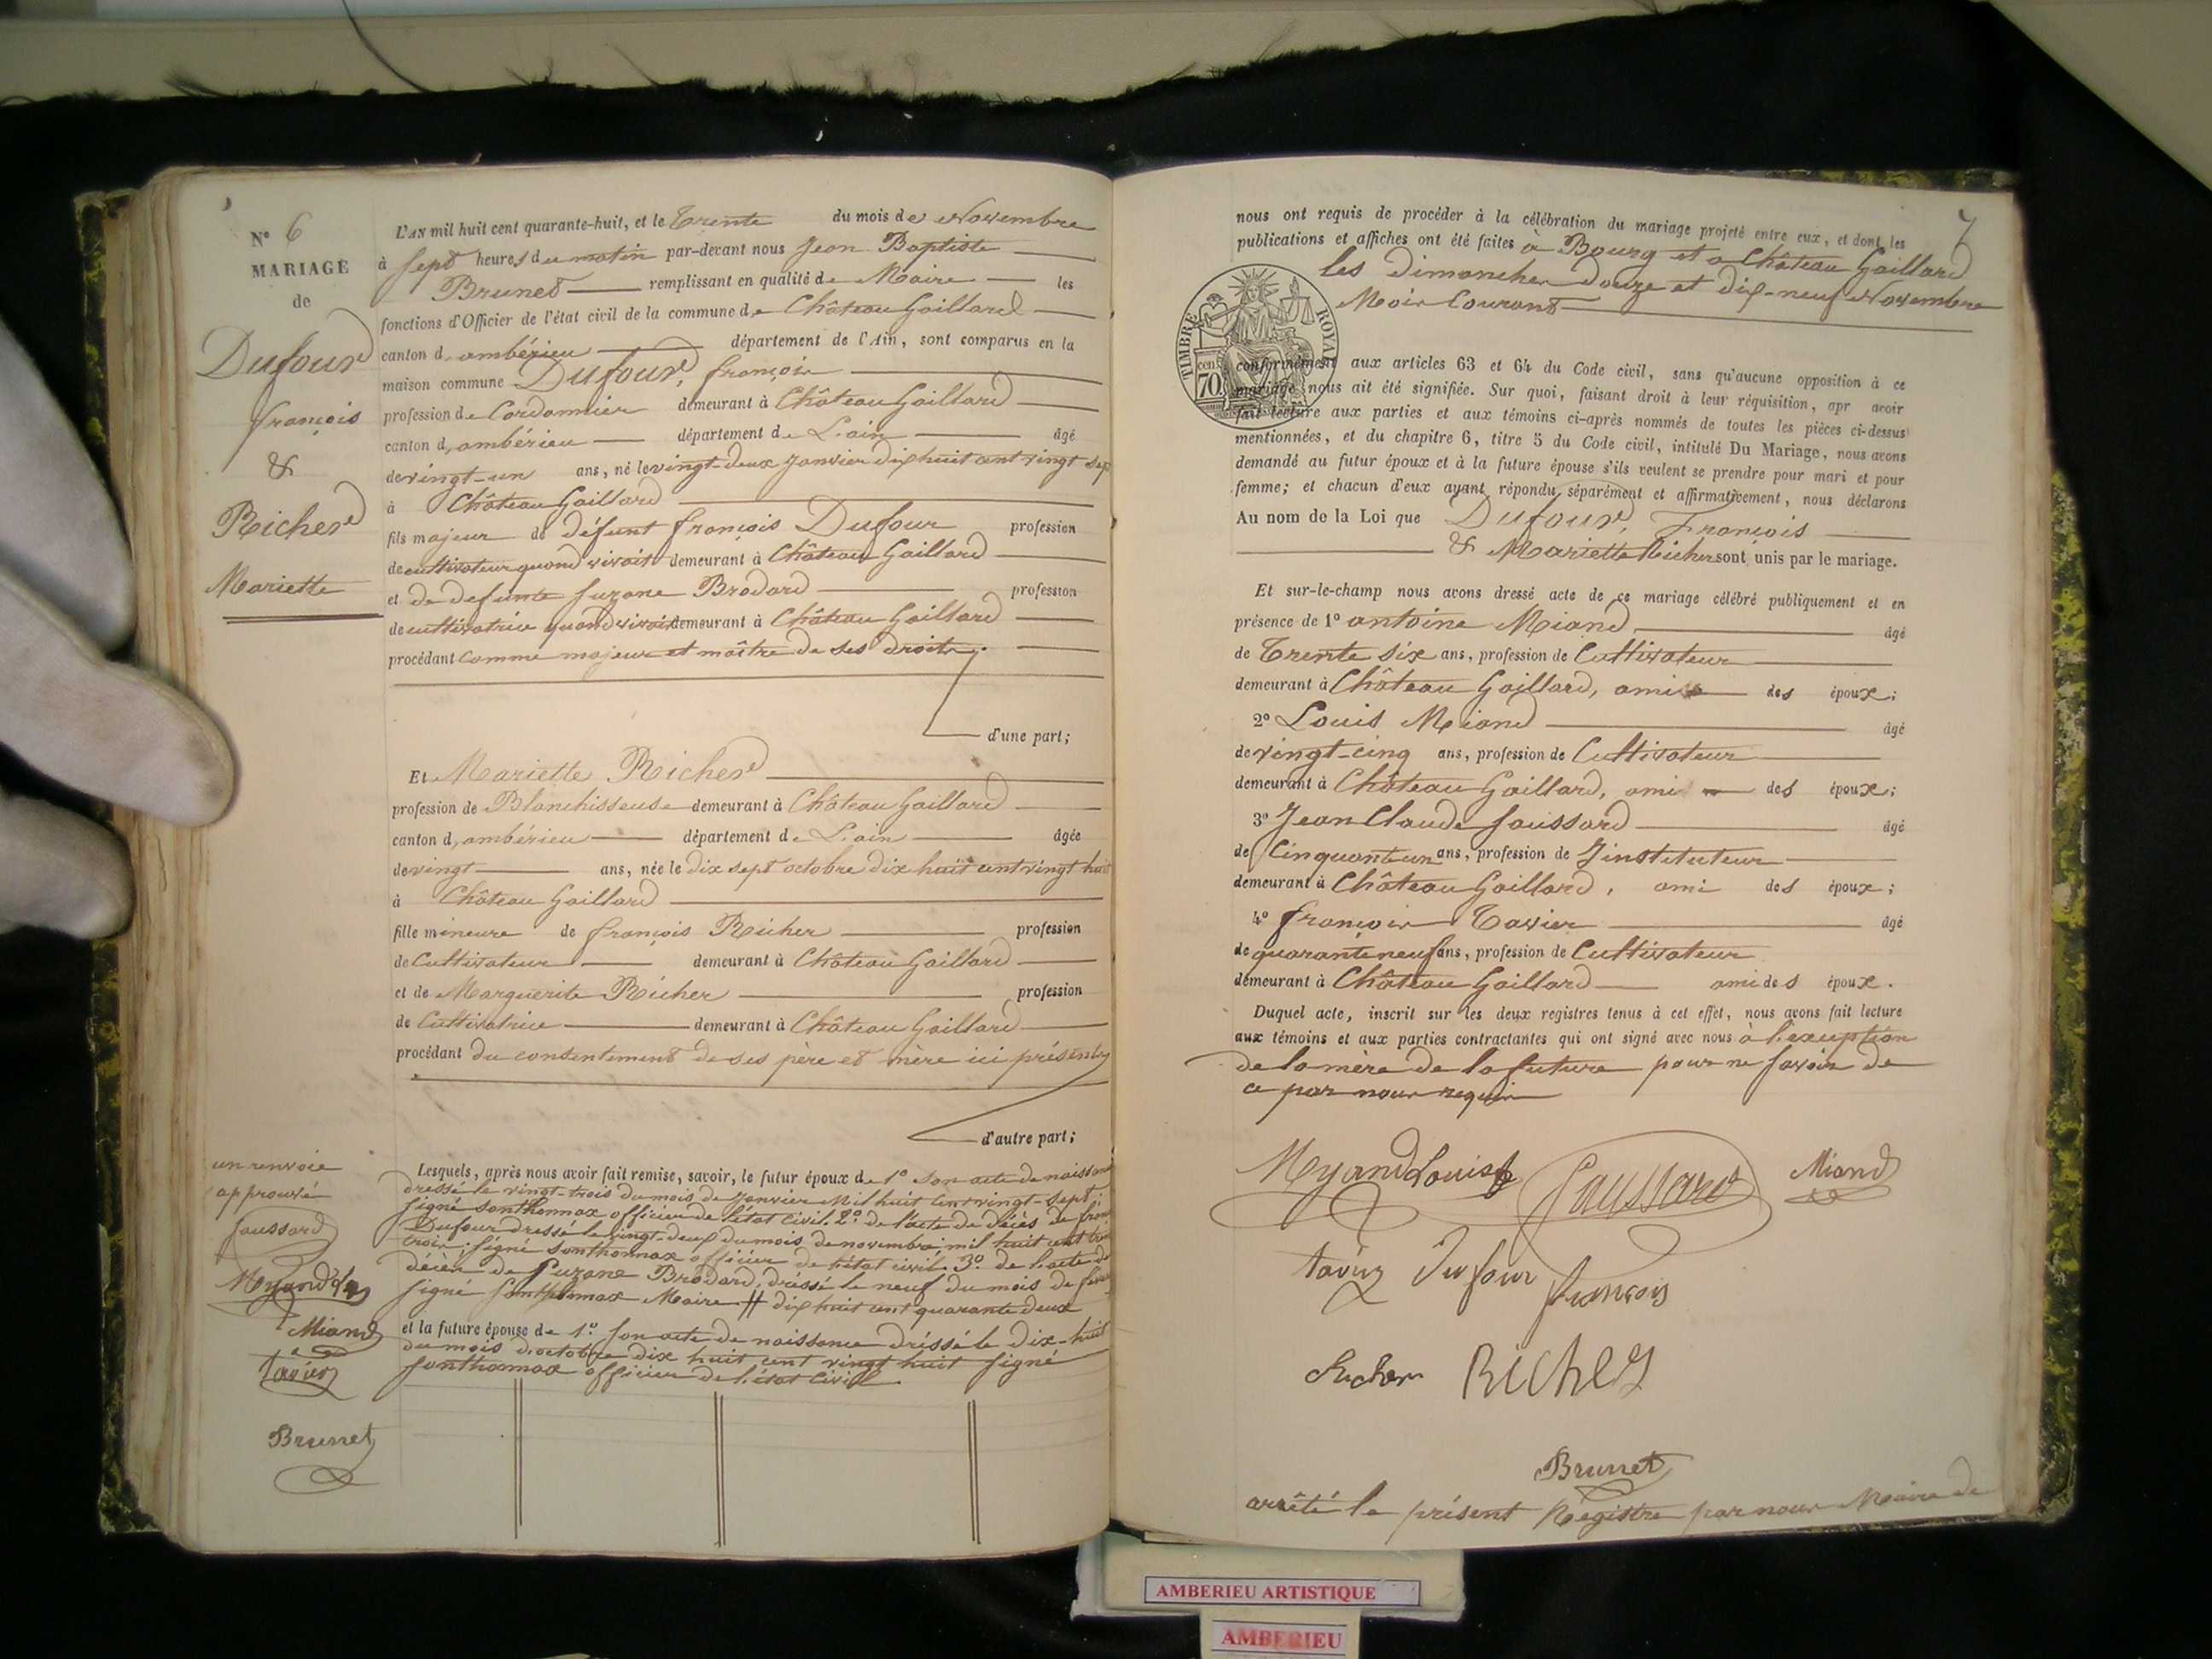 N° 6
MARIAGE
de
Dufour
françois
&
Richer
Mariette
L'AN mil huit cent quarante-huit, et le Trente du mois de Novembre
à sept heures du matin par-devant nous Jean Baptiste
Brunet remplissant en qualité de Maire les
fonctions d'Officier de l'état civil de la commune de Château Gaillard
canton d'ambérieu département de l'Ain, sont comparus en la
maison commune Dufour, françois
profession de Cordonnier demeurant à Château Gaillard
canton d'ambérieu département de L'ain âgé
de vingt-un ans, né le vingt-deux Janvier dix huit cent vingt sept
à Château Gaillard
fils majeur de défunt françois Dufour profession
de cultivateur quand vivait demeurant à Château Gaillard
et de defunte suzane Brodard profession
de cultivatrice quand vivait demeurant à Château Gaillard
procédant comme majeur et maître de ses droits.
d'une part;
Et Mariette Richer
profession de Blanchisseuse demeurant à Château Gaillard
canton d'ambérieu département de L'ain âgée
de vingt ans, née le dix sept octobre dix huit cent vingt huit
à Château Gaillard
fille mineure de françois Richer profession
de Cultivateur demeurant à Château Gaillard
et de Marguerite Richer profession
de Cultivatrice demeurant à Château Gaillard
procédant du consentement de ses père et mère ici présents
d'autre part;
Lesquels, après nous avoir fait remise, savoir, le futur époux de 1° son acte de naissance
dressé le vingt-trois du mois de Janvier Mil huit cent vingt-sept;
signé sonthonnax officier de l'état civil. 2° de l'acte de décès de
Dufour dressé le vingt-deux du mois de novembre, mil huit cent
trois. signé sonthonnax officier de l'état civil. 3° de l'acte de
décès de Suzane Brodard, dressé le neuf du mois de
signé sonthonnax Maire. # dix huit cent quarante deux
et la future épouse de 1° son acte de naissance dréssé le dix-huit
du mois d'octobre dix huit cent vingt huit signé
sonthonnax officier de l'état Civil
un renvoie
approuvé
faussard
Myand
Miand
tavier
Brunet
7
nous ont requis de procéder à la célébration du mariage projeté entre eux, et dont les
publications et affiches ont été faites à Bourg et a Château Gaillard
les dimanches douze et dix-neuf Novembre
Mois Courant
TIMBRE ROYAL
70 cen.
conformément aux articles 63 et 64 du Code civil, sans qu'aucune opposition à ce
mariage nous ait été signifiée. Sur quoi, faisant droit à leur réquisition, apr avoir
fait lecture aux parties et aux témoins ci-après nommés de toutes les pièces ci-dessus
mentionnées, et du chapitre 6, titre 5 du Code civil, intitulé Du Mariage, nous avons
demandé au futur époux et à la future épouse s'ils veulent se prendre pour mari et pour
femme; et chacun d'eux ayant répondu séparément et affirmativement, nous déclarons
Au nom de la Loi que Dufour, François
& Mariette Richer sont unis par le mariage.
Et sur-le-champ nous avons dressé acte de ce mariage célébré publiquement et en
présence de 1° antoine Miand âgé
de Trente six ans, profession de Cultivateur
demeurant à Château Gaillard, ami des époux;
2° Louis Miand âgé
de vingt-cinq ans, profession de Cultivateur
demeurant à Château Gaillard, ami des époux;
3° Jean Claude faussard âgé
de Cinquante un ans, profession de Jinstituteur
demeurant à Château Gaillard, ami des époux;
4° françois Tavier âgé
de quarante neuf ans, profession de Cultivateur
demeurant à Château Gaillard ami des époux.
Duquel acte, inscrit sur les deux registres tenus à cet effet, nous avons fait lecture
aux témoins et aux parties contractantes qui ont signé avec nous à l'exception
de la mère de la future pour ne savoir de
ce par nous requis
Myand Louis faussard Miand
tavier Dufour
françois
Richer Richer
Brunet
arrêté le présent Régistre par nous Maire de
AMBERIEU ARTISTIQUE
AMBERIEU